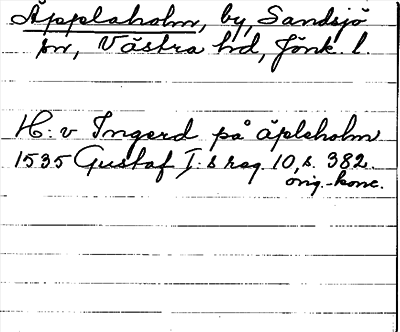 Äpplaholm, by, Sandsjö
sn, Västra hd, Jönk. l.
H: v Ingerd på äpleholm
1535 Gustaf I:s reg. 10, s. 382.
orig.-konc.